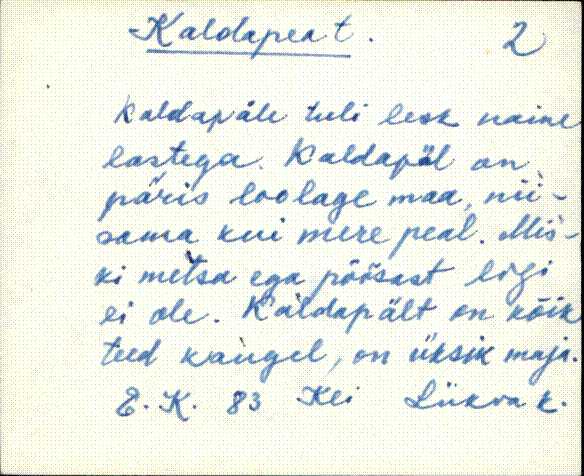 Kaldapeat. 2
Kaldapäle tuli lesk naine
lastega. Kaldapäl on
päris loolage maa, nii-
sama kui mere peal. Mis-
ki metsa ega põõsast ligi
ei ole. Kaldapält on kõik
teed kaugel, on üksik maja.
E. K. 83 Khi Liikva k.